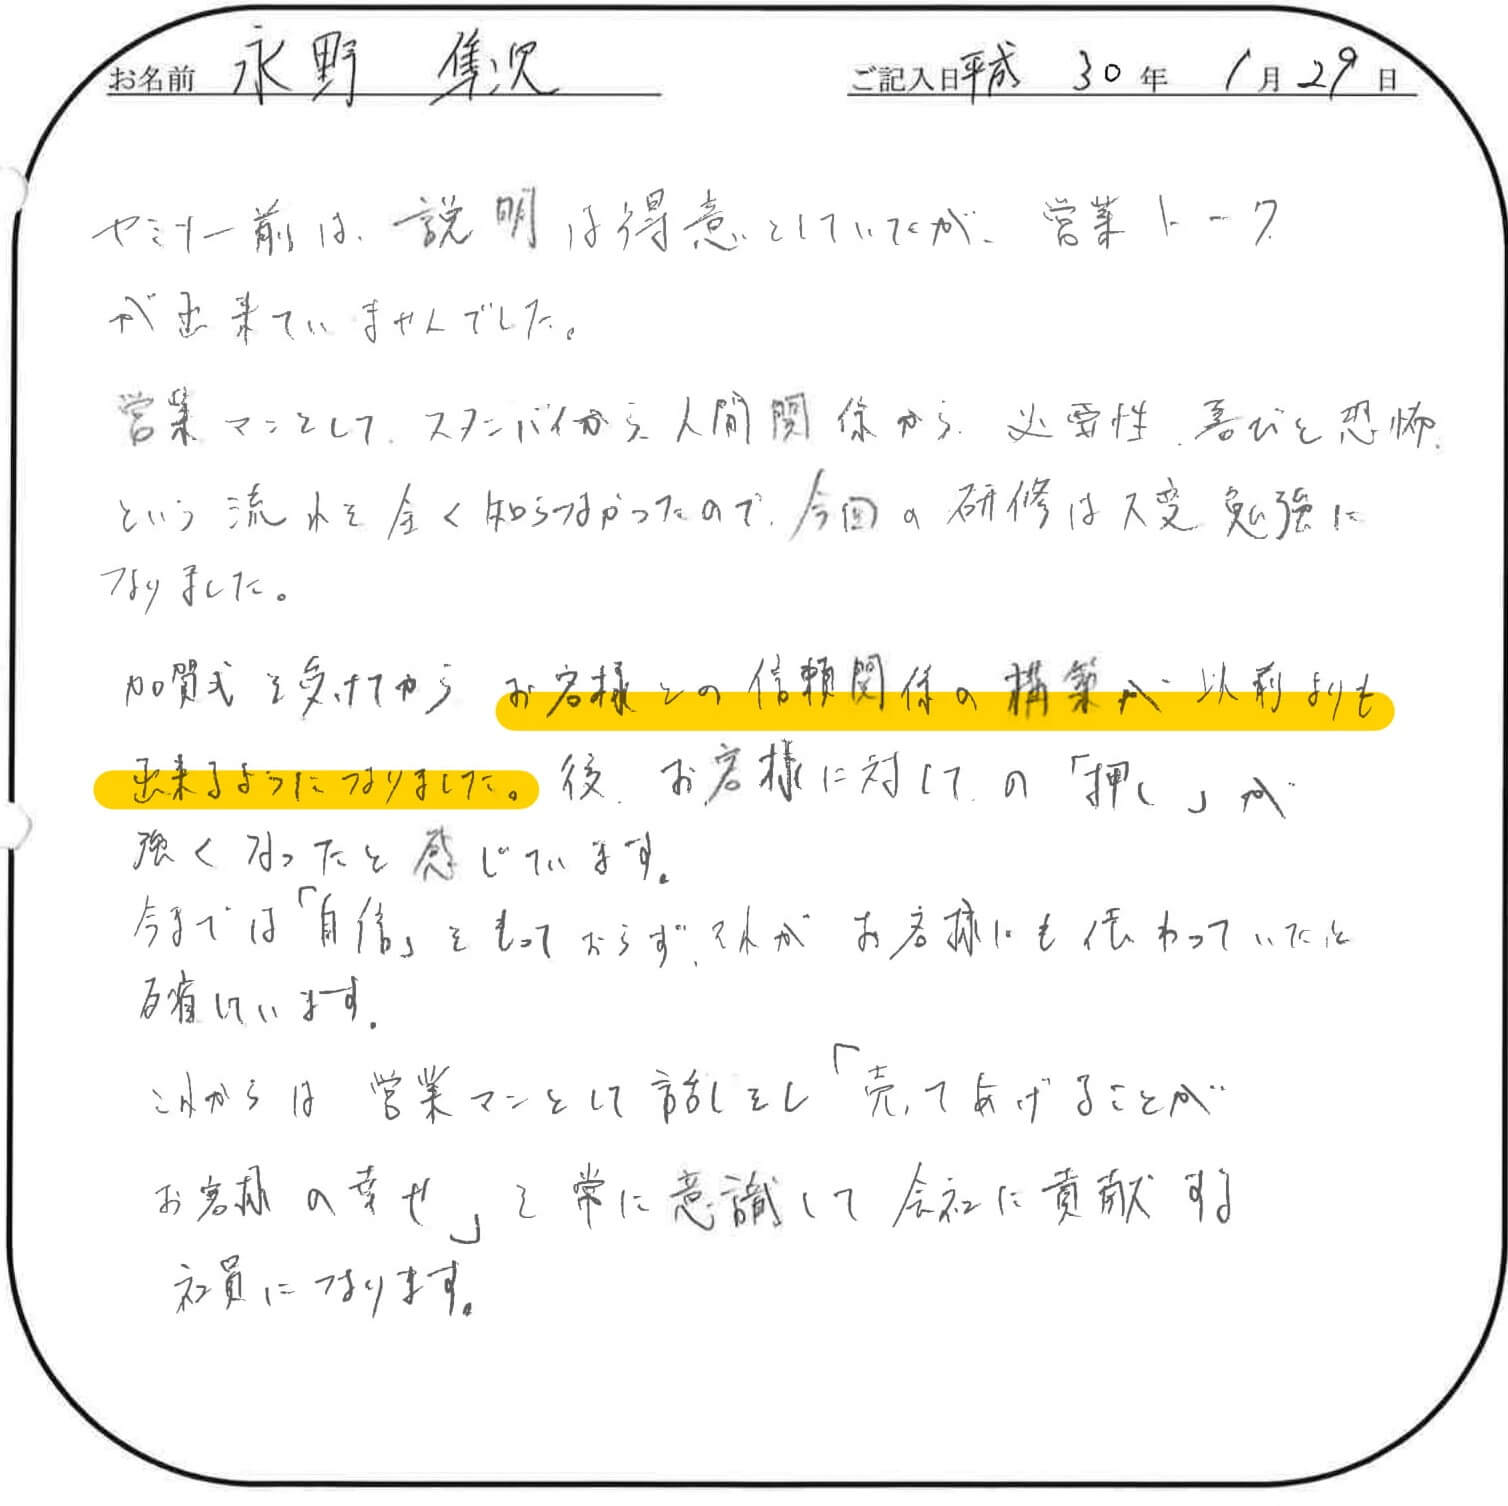 お名前 永野 隼児 ご記入日 平成 30年 1月29日
セミナー前は、説明は得意としていたが、営業トーク
が出来ていませんでした。
営業マンとして、スタンバイから、人間関係から、必要性、喜びと恐怖、
という流れを全く知らなかったので、今回の研修は大変勉強に
なりました。
加賀式を受けてから お客様との信頼関係の構築が以前よりも
出来るようになりました。後、お客様に対しての「押し」が
強くなったと感じています。
今までは「自信」をもっておらず、それがお客様にも伝わっていたと
確信しています。
これからは営業マンとして話をし「売ってあげることが
お客様の幸せ」と常に意識して会社に貢献する
社員になります。